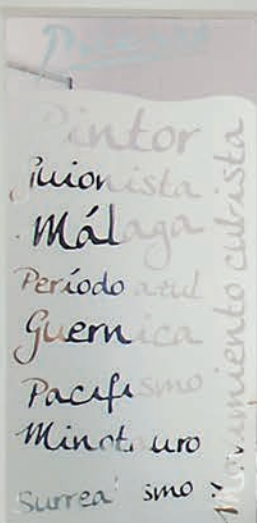 Picasso
Pintor
Guionista
Málaga
Período azul
Guernica
Pacifismo
Minotauro
Surrealismo
Movimiento cubista